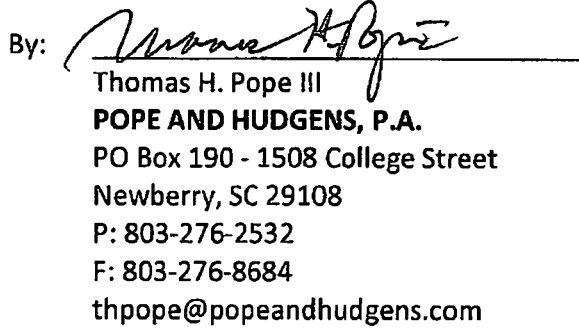 By: Thomas H. Pope III
Thomas H. Pope III
POPE AND HUDGENS, P.A.
PO Box 190 - 1508 College Street
Newberry, SC 29108
P: 803-276-2532
F: 803-276-8684
thpope@popeandhudgens.com